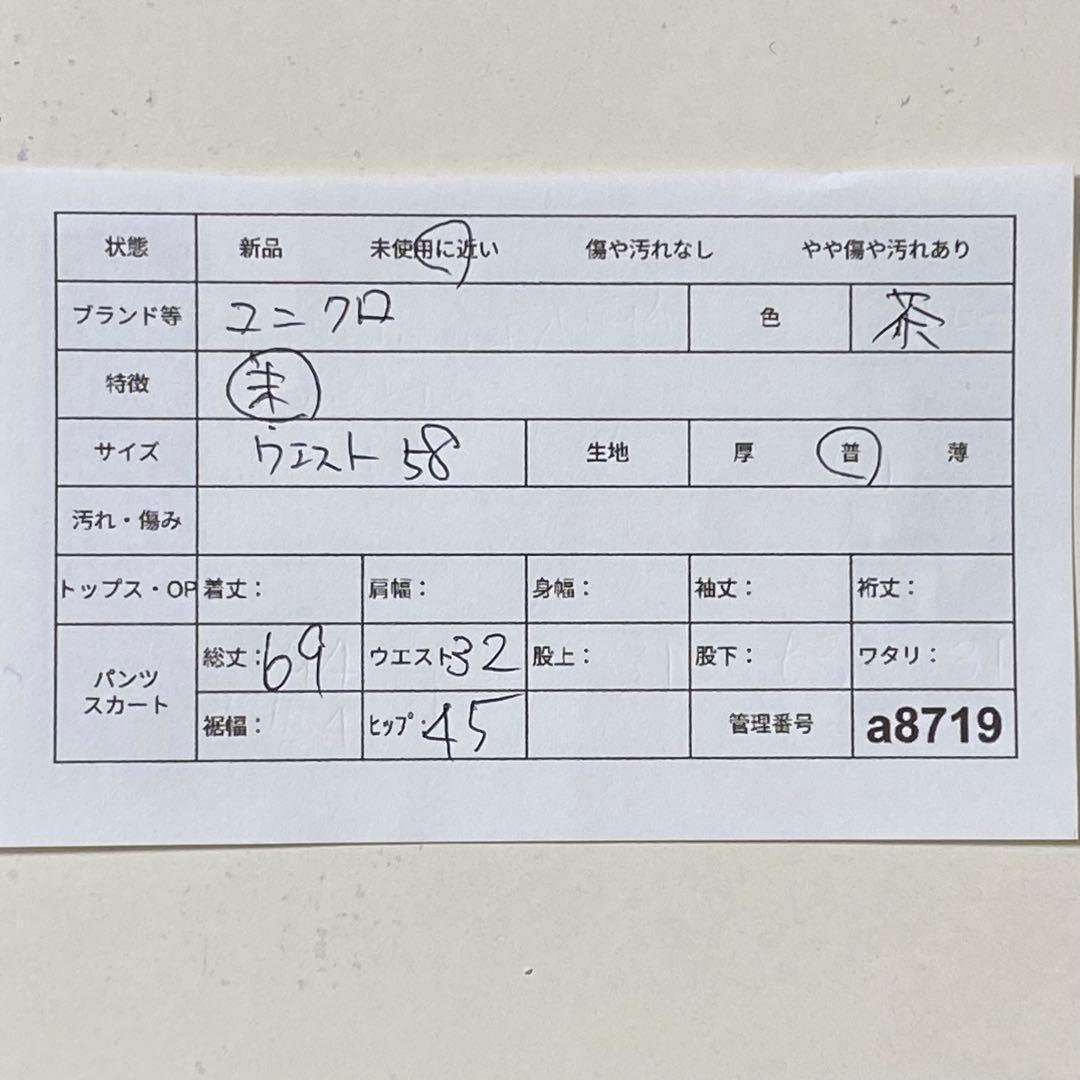 状態 新品 未使用に近い 傷や汚れなし やや傷や汚れあり
ブランド等 ユニクロ 色 茶
特徴 未
サイズ ウエスト 58 生地 厚 普 薄
汚れ・傷み
トップス・OP 着丈: 肩幅: 身幅: 袖丈: 裄丈:
パンツ スカート 総丈:69 ウエスト32 股上: 股下: ワタリ:
裾幅: ﾋｯﾌﾟ:45 管理番号 a8719